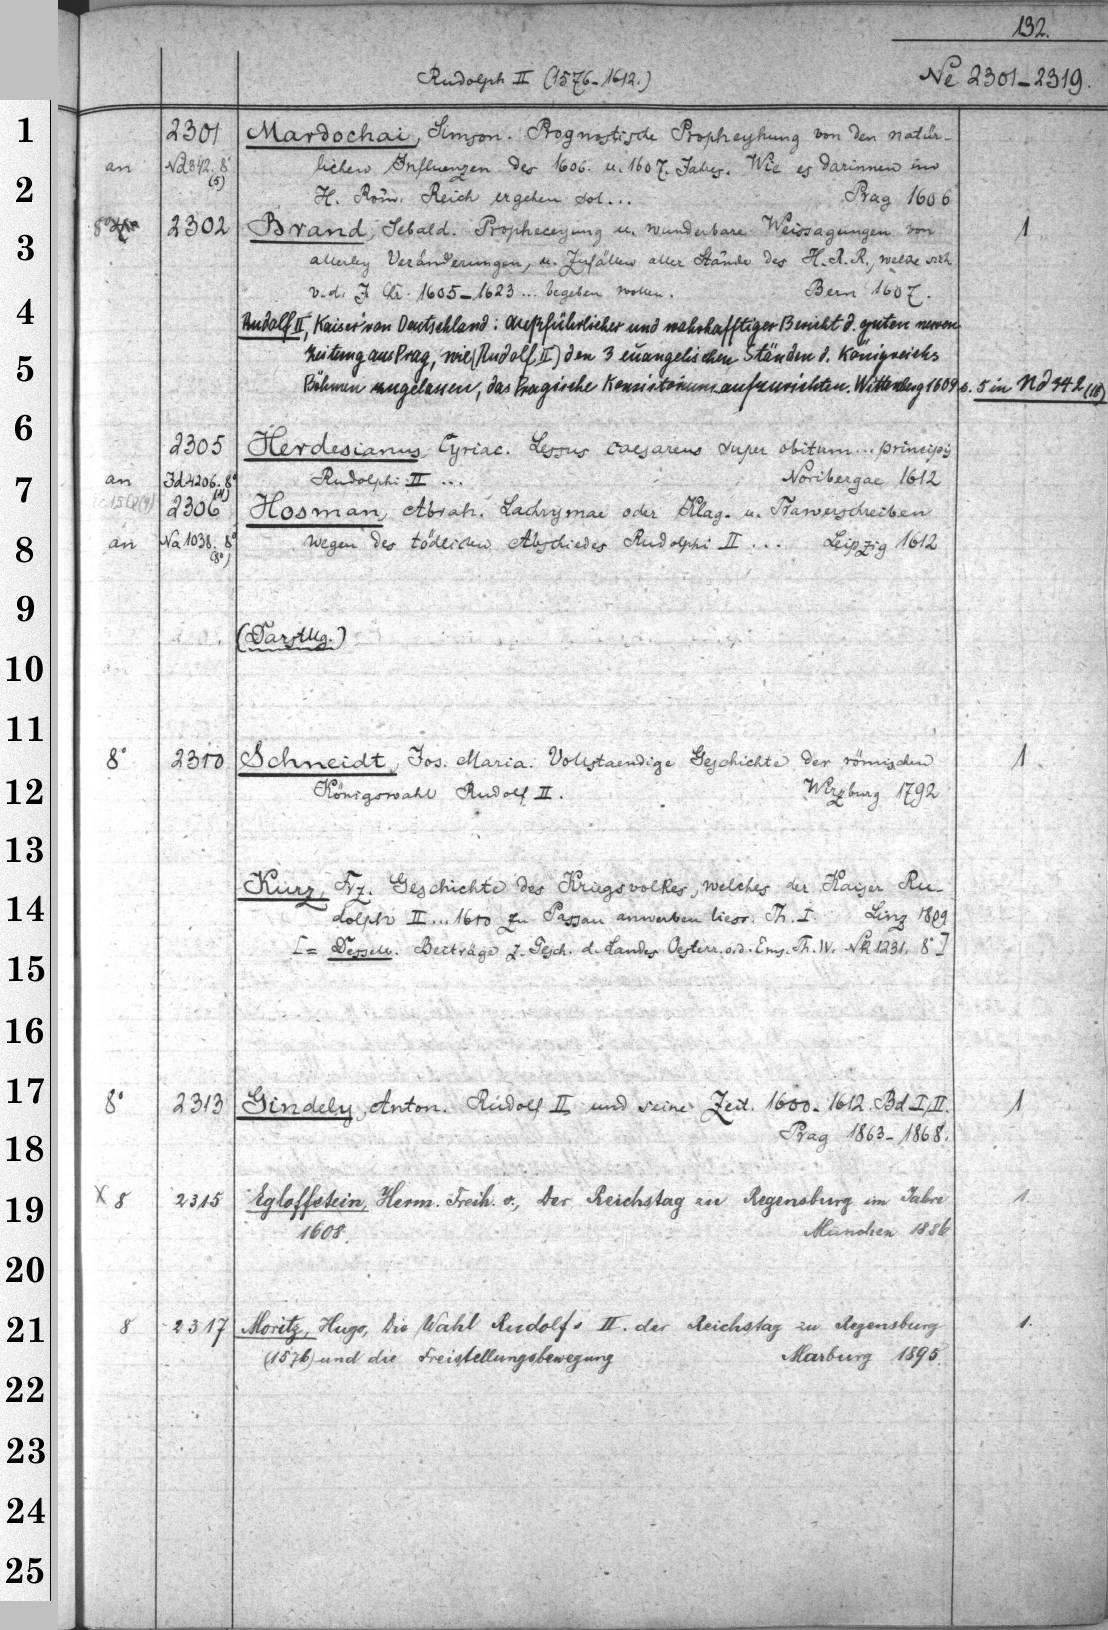 132.
Rudolph II (1576-1612.) Ne 2301-2319.
1 2301 Mardochai, Simson. Prognostische Propheyhung von den natür-
an Nd 342. 8° lichen Influenzen des 1606. u. 1607. Jahes. Wie es darinnen im
2 (5) H. Röm. Reich ergehen sol... Prag 1606
8° 2302 Brand, Sebald. Propheceyung u. wunderbare Weissagungen von 1
3 allerley Veränderungen, u. Zufällen aller Stände des H. R. R., welche sich
v. d. J. Chr. 1605-1623... begeben wollen. Bern 1607.
4 Rudolf II, Kaiser von Deutschland: Außführlicher und wahrhafftiger Bericht d. guten newen
5 Zeitung aus Prag, wie (Rudolf II) den 3 euangelischen Ständen d. Königreichs
Böhmen zugelassen, das Pragische Konsistorium aufzurichten. Wittenberg 1609 s. 5 in Nd 342 (18)
6 2305 Herdesianus, Cyriac. Lessus caesareus super obitum... principis
an Jd 4206. 8° Rudolphi II ... Noribergae 1612
7 2306 Hosman, Abrah. Lachrymae oder Klag- u. Trawerschreiben
8 an Na 1038. 8° wegen des tödlichen Abschiedes Rudolphi II ... Leipzig 1612
(8°)
9
(Darstllg.)
10
11
8° 2310 Schneidt, Jos. Maria. Vollstaendige Geschichte der römischen 1
12 Königswahl Rudolf II. Wirzburg 1792
13
Kurz, Frz. Geschichte des Kriegsvolkes, welches der Kaiser Ru-
14 dolph II ... 1610 zu Passau anwerben liess. Th. I. Linz 1809
15 [= Desselb. Beiträge z. Gesch. d. Landes Oesterr. o. d. Ens. Th. IV. Nk 1231. 8°]
16
17 8° 2313 Gindely, Anton. Rudolf II und seine Zeit. 1600-1612. Bd I, II. 1
18 Prag 1863-1868.
19 X 8 2315 Egloffstein, Herm. Freih. v., Der Reichstag zu Regensburg im Jahre 1.
1608. München 1886
20
21 8 2317 Moritz, Hugo, Die Wahl Rudolfs II. der Reichstag zu Regensburg 1.
(1576) und die Freistellungsbewegung Marburg 1895.
22
23
24
25